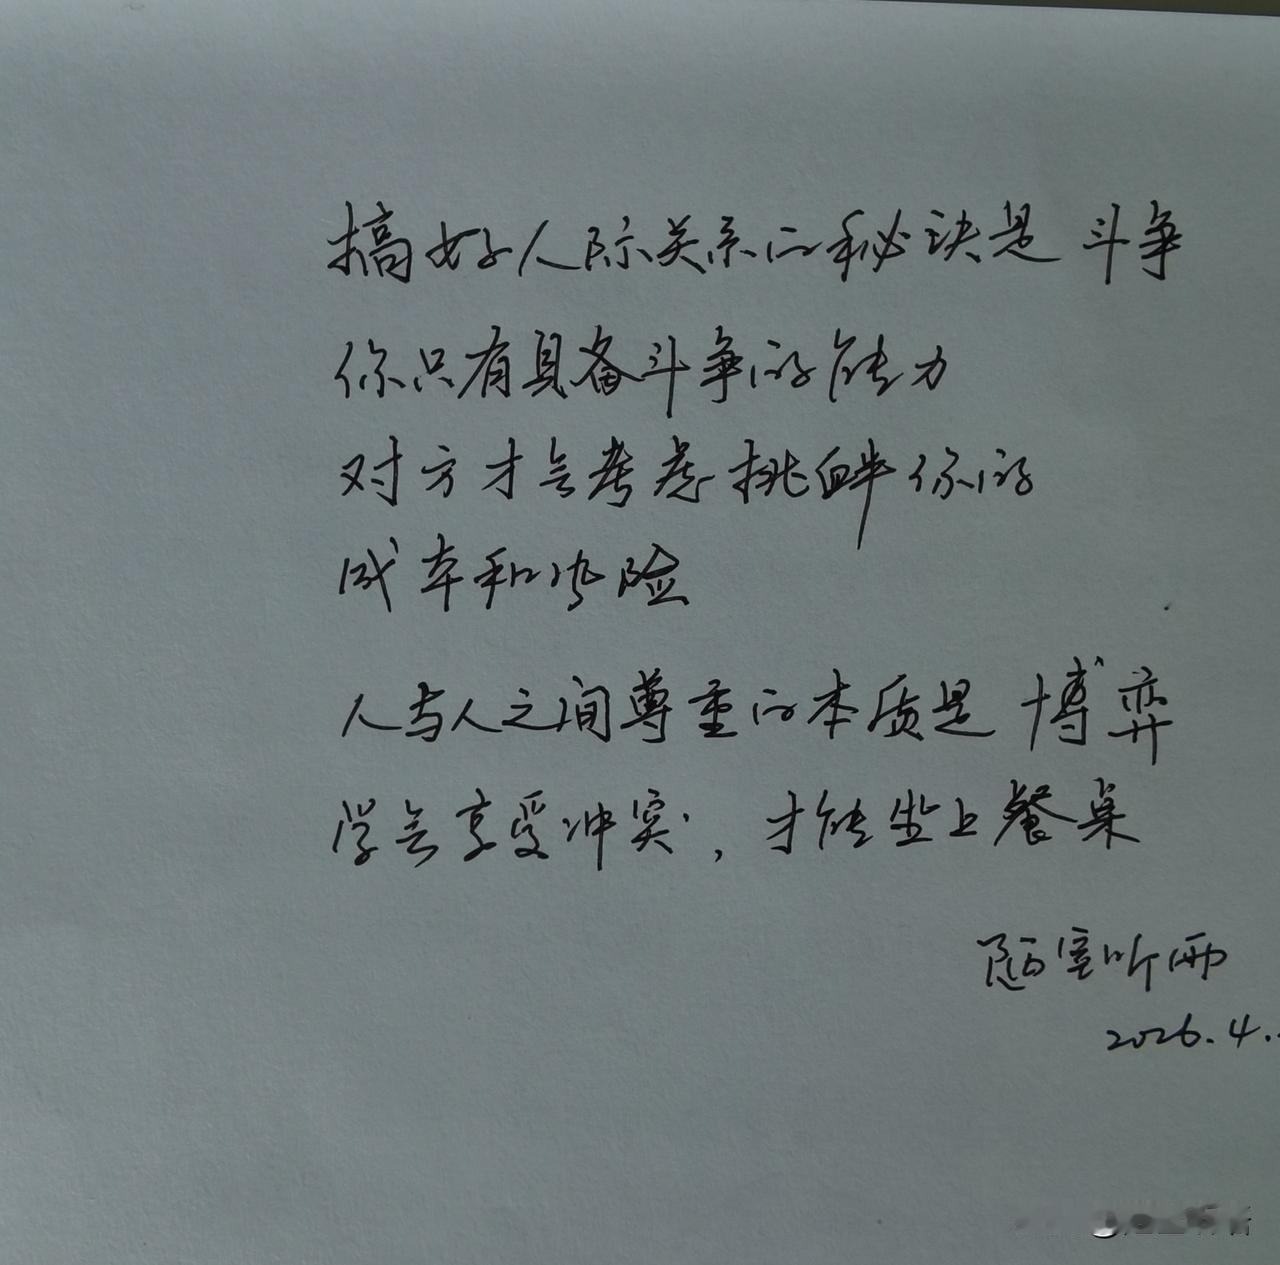 搞好人际关系的秘诀是 斗争
你只有具备斗争的能力
对方才会考虑挑衅你的
成本和风险
人与人之间尊重的本质是 博弈
学会享受冲突，才能坐上餐桌
陋室听雨
2026.4.